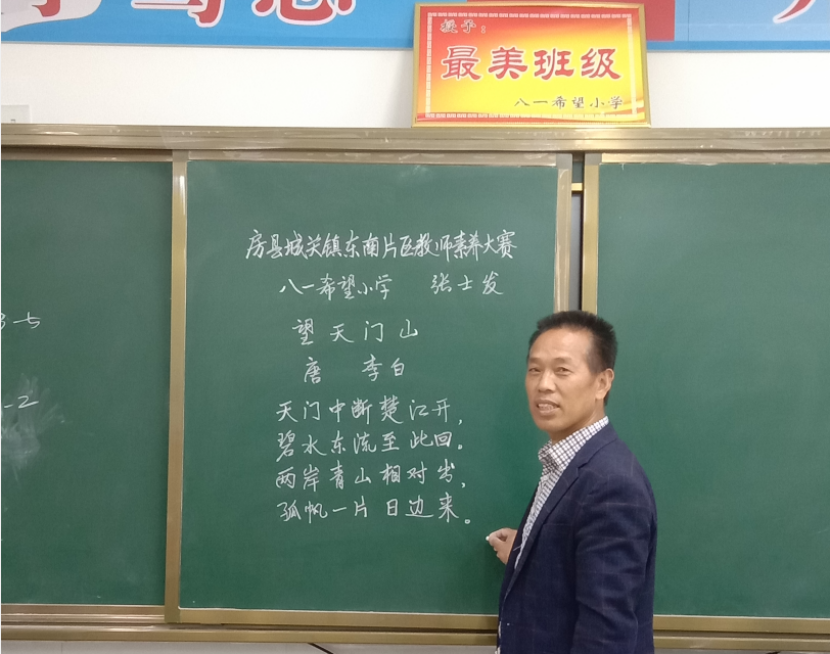 授予：
最美班级
八一希望小学
房县城关镇东南片区教师素养大赛
八一希望小学 张士发
望天门山
唐 李白
天门中断楚江开，
碧水东流至此回。
两岸青山相对出，
孤帆一片日边来。